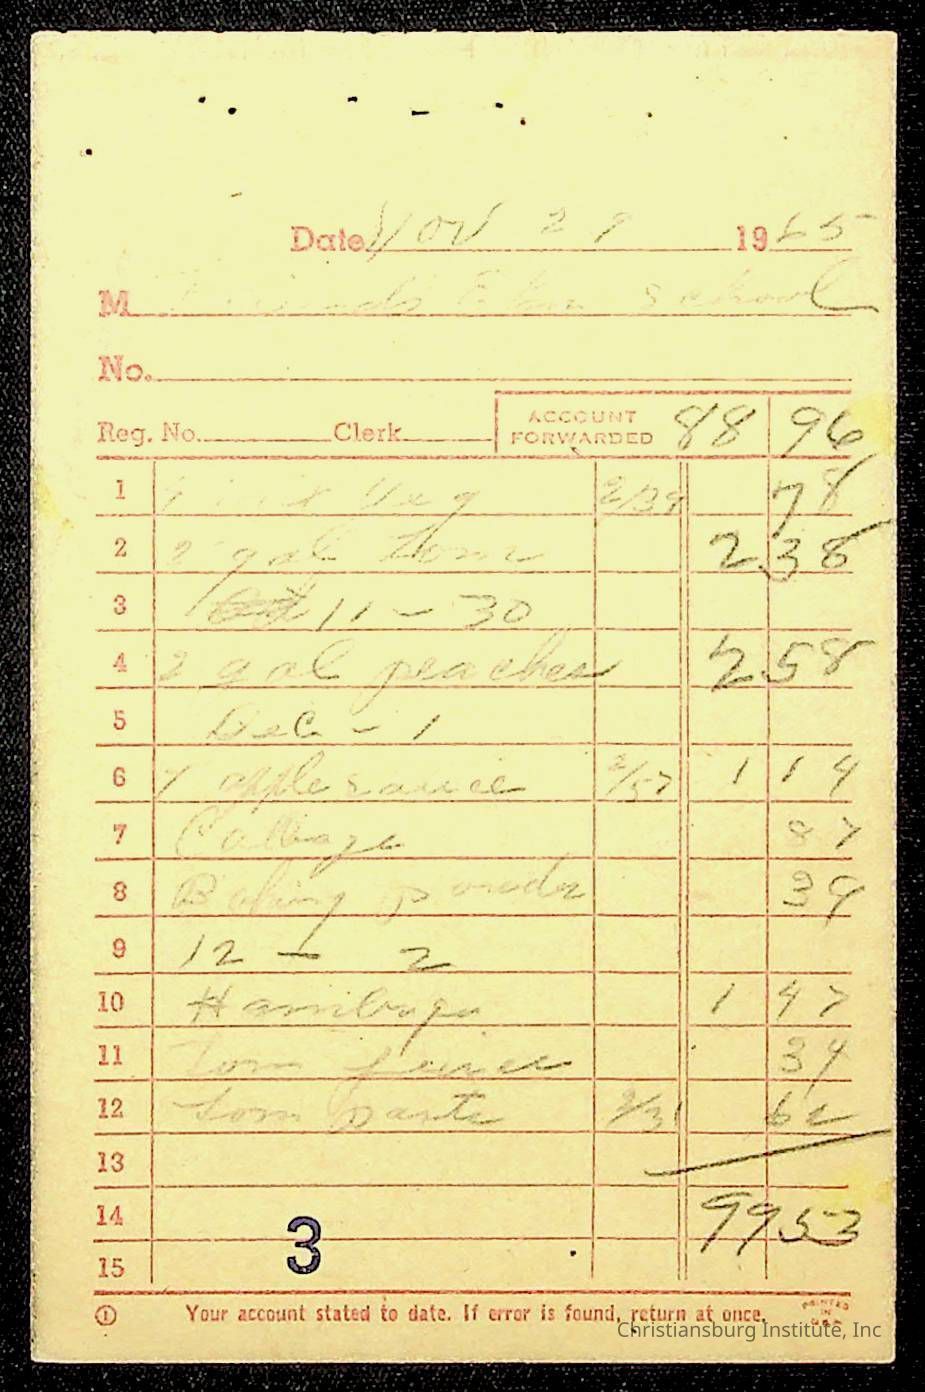 Date Nov 29 1965
M Friends Elem School
No.
Reg. No. Clerk ACCOUNT FORWARDED 88 96
1 Veg 2/39 78
2 2 gal Tom 2 38
3 11 - 30
4 2 gal peaches 2 58
5 Dec - 1
6 apple sauce 2/57 1 14
7 Cabbage 87
8 Baking powder 39
9 12 - 2
10 Hamburger 1 47
11 Tom juice 39
12 Tom paste 2/31 62
13
14 99 53
15
3
1 Your account stated to date. If error is found, return at once. PRINTED IN U.S.A.
Christiansburg Institute, Inc